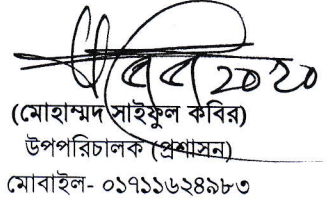 ২০২০
(মোহাম্মদ সাইফুল কবির)
উপপরিচালক (প্রশাসন)
মোবাইল- ০১৭১১৬২৪৯৮৩